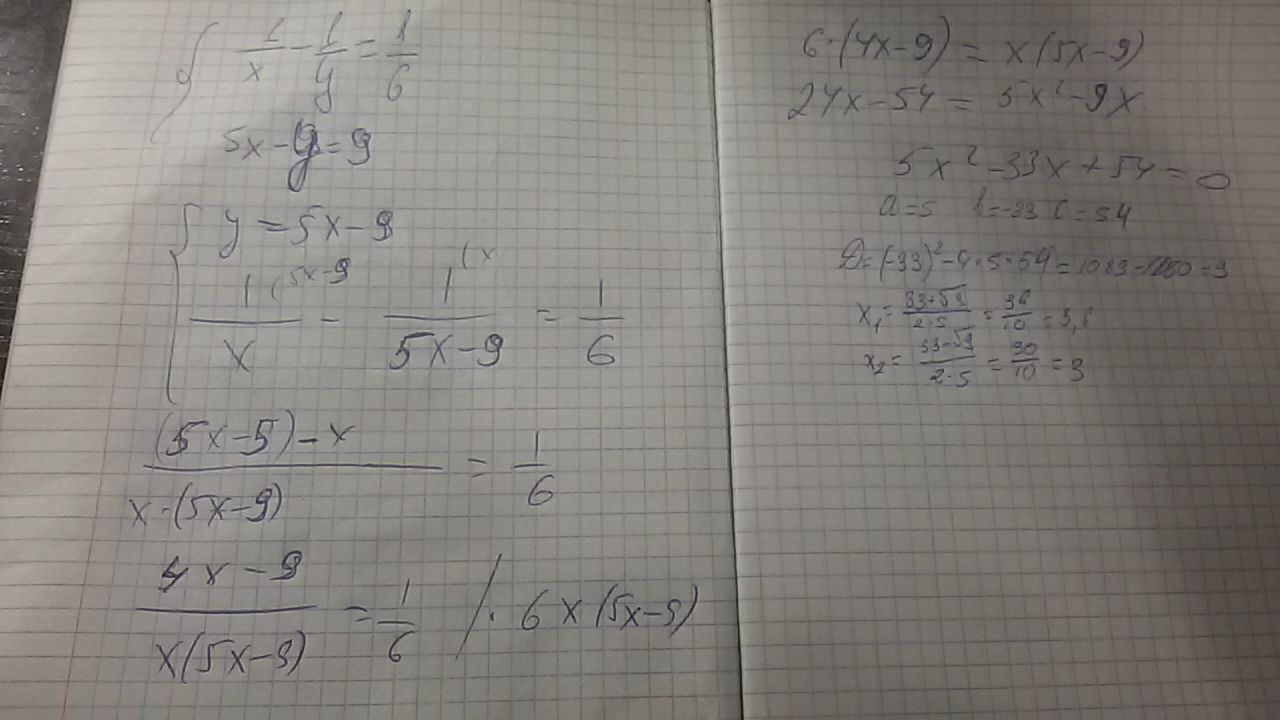 { 1/x - 1/y = 1/6
5x - y = 9
{ y = 5x - 9
1(5x-9 / x - 1(x / 5x-9 = 1/6
(5x-5)-x / x·(5x-9) = 1/6
4x-9 / x(5x-9) = 1/6 /· 6x(5x-9)
6·(4x-9) = x(5x-9)
24x-54 = 5x²-9x
5x²-33x+54=0
a=5 b=-33 c=54
D=(-33)²-4·5·54=1089-1080=9
x₁= 33+√9 / 2·5 = 36/10 = 3,6
x₂= 33-√9 / 2·5 = 30/10 = 3